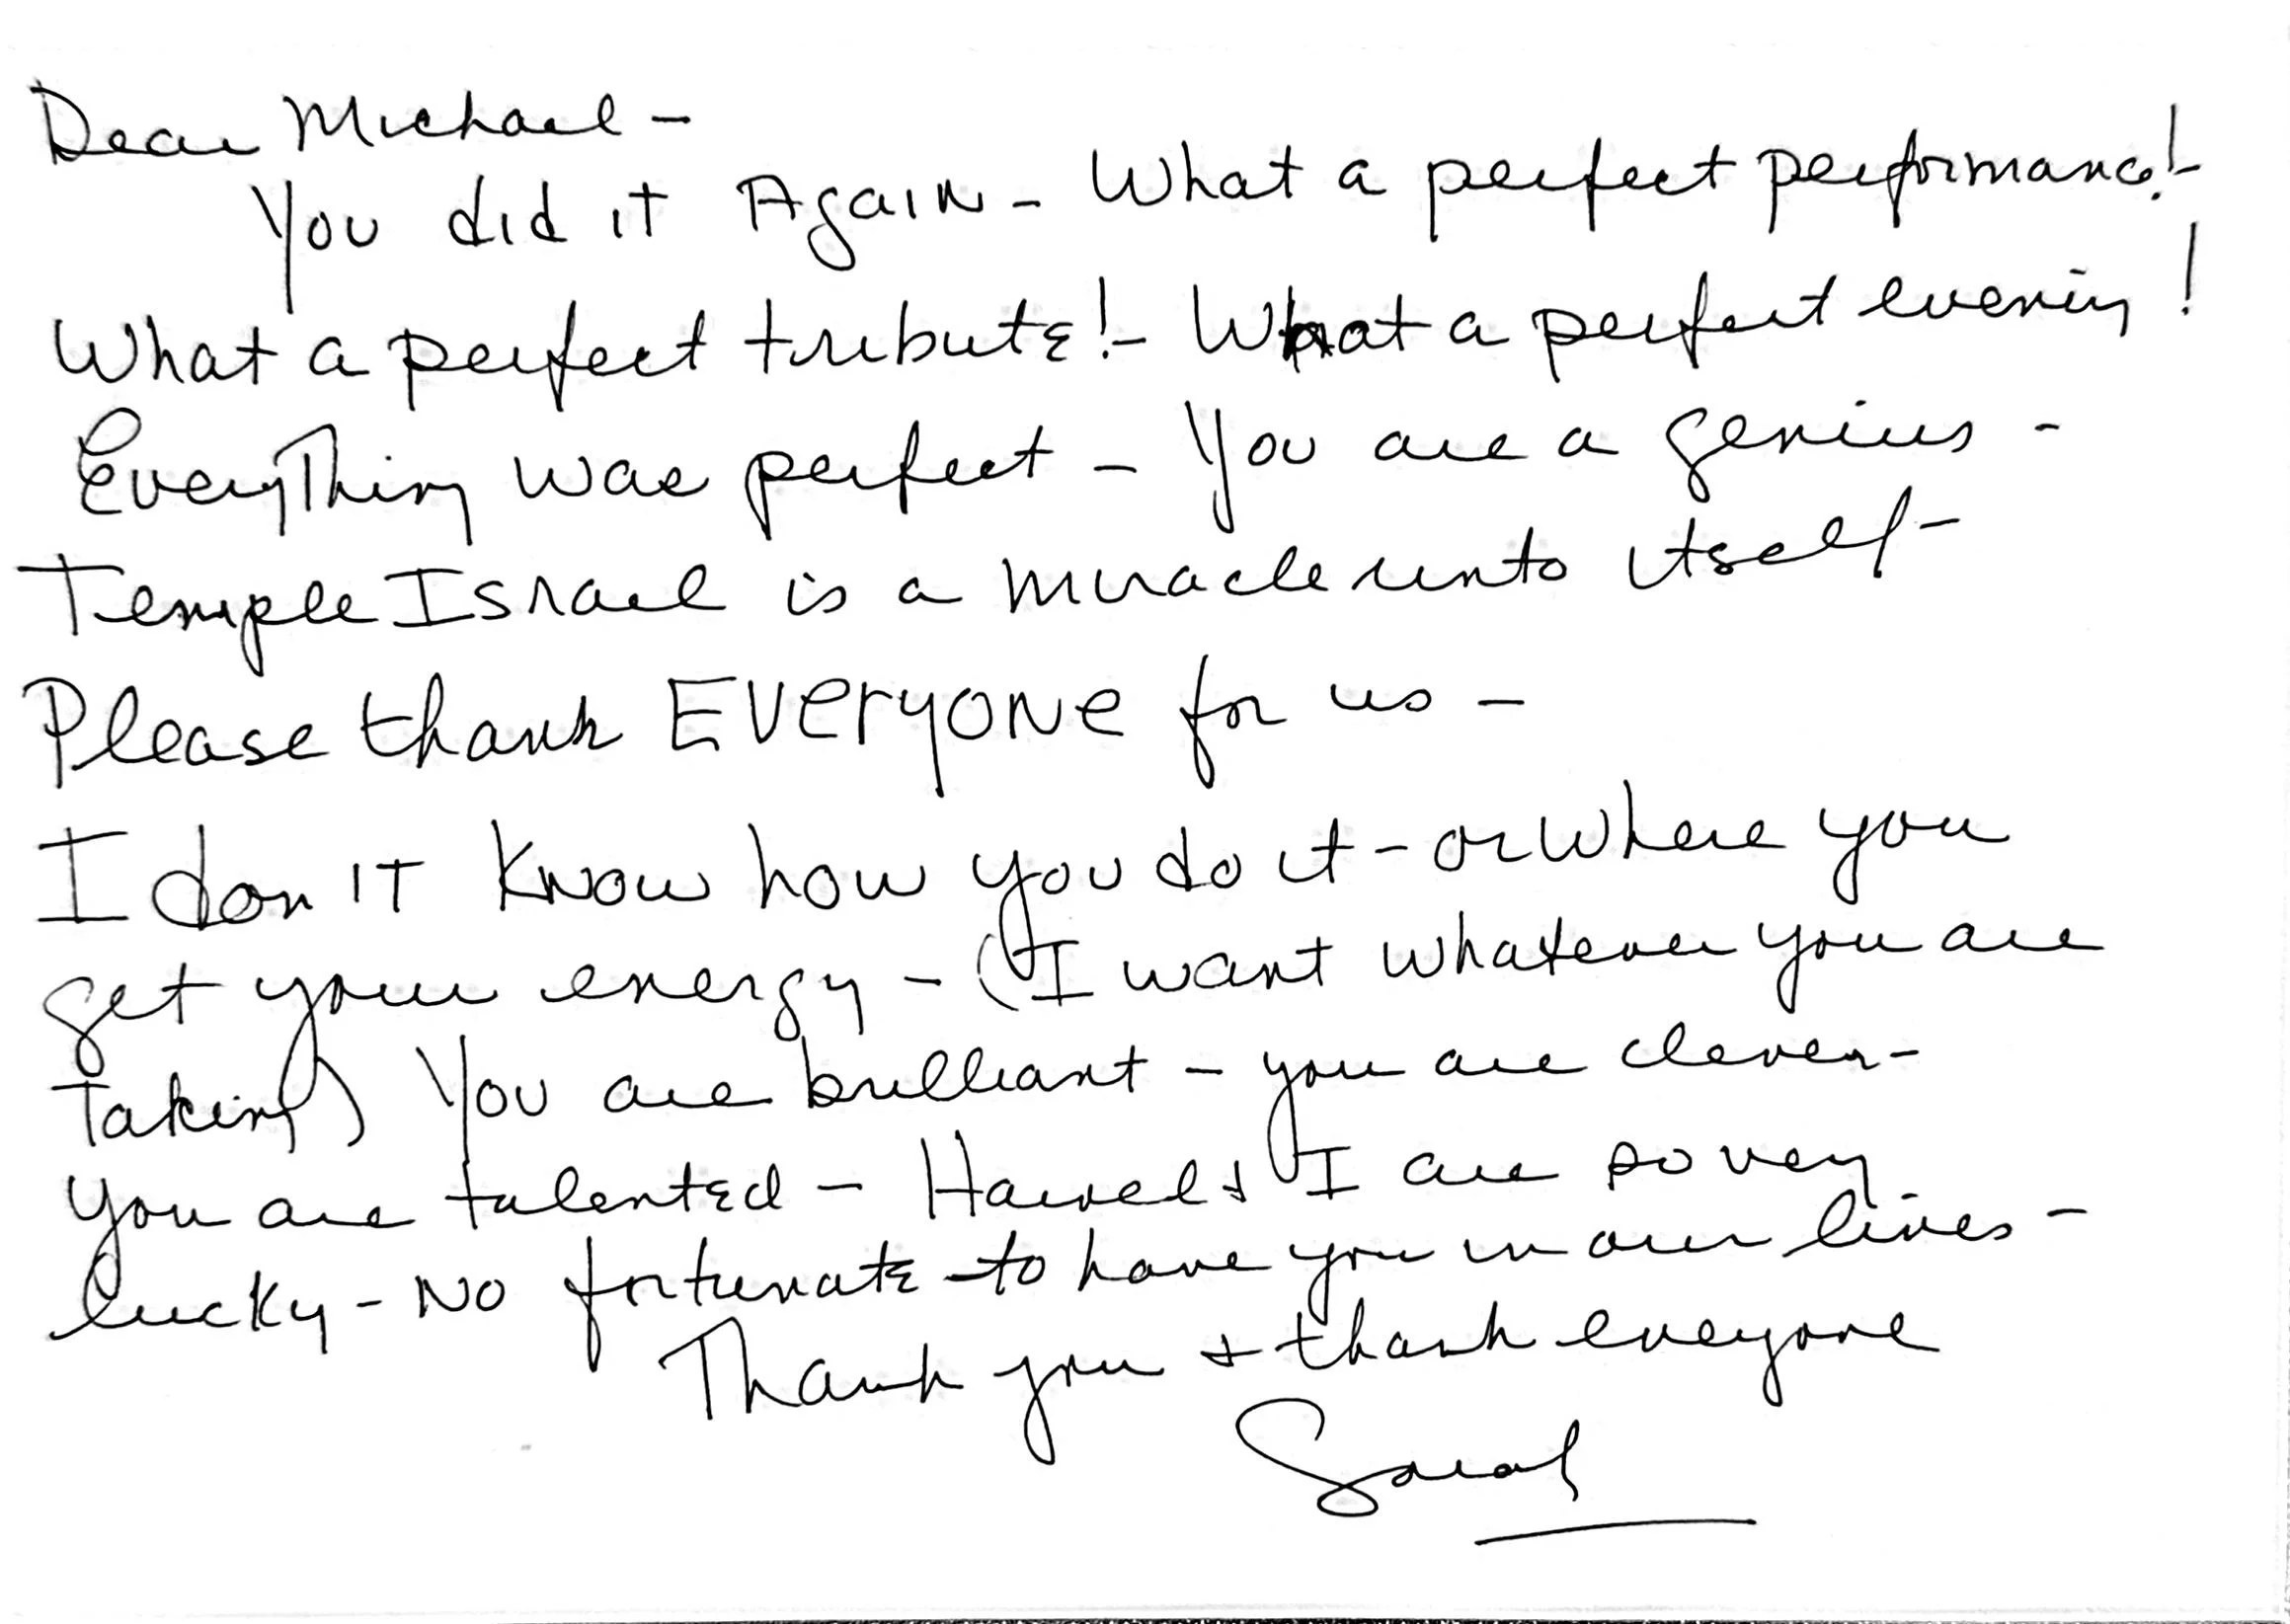 Dear Michael -
You did it Again - What a perfect performance! -
What a perfect tribute! - What a perfect evening!
Everything was perfect - You are a genius -
Temple Israel is a miracle unto itself -
Please thank EVeryONe for us -
I don't know how you do it - or where you
get your energy - (I want whatever you are
taking) You are brilliant - you are clever -
you are talented - & I are so very
lucky - No fortunate - to have you in our lives -
Thank you & thank everyone
Sarah